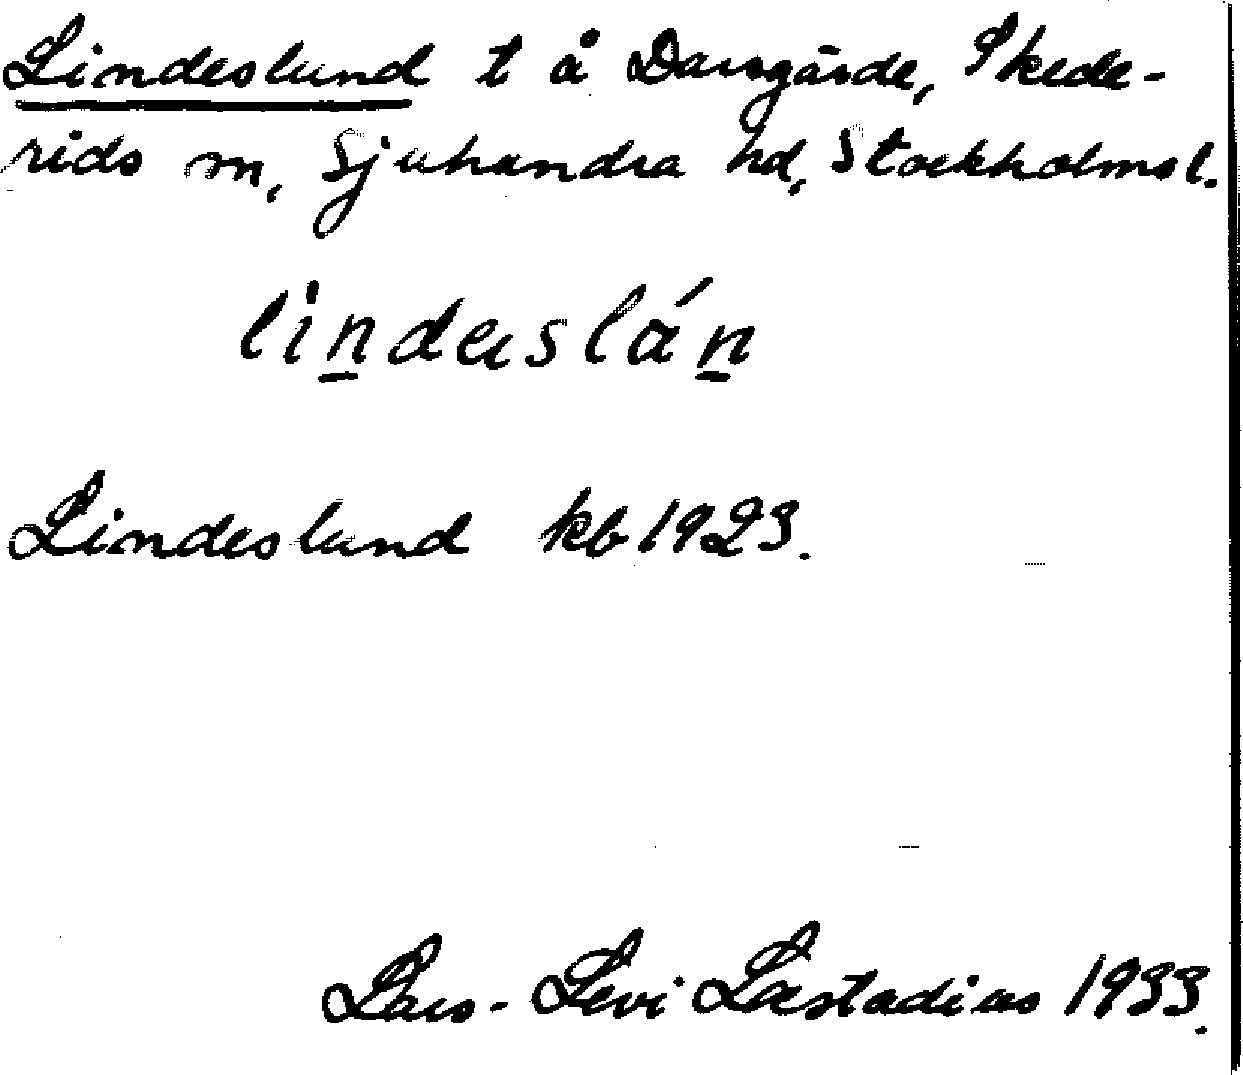 Lindeslund t å Darsgärde, Skede-
rids sn, Sjuhundra hd, Stockholms l.
lindaslán
Lindeslund kb 1923.
Lars-Levi Læstadius 1933.